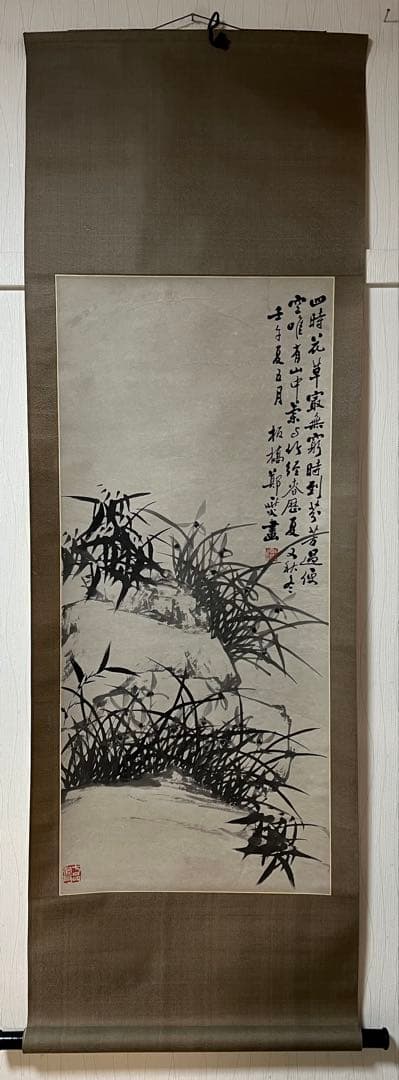 四時花草最無窮時到芬芳過便
空唯有山中蘭與竹經春歷夏又秋冬
壬午夏五月 板橋鄭燮畫